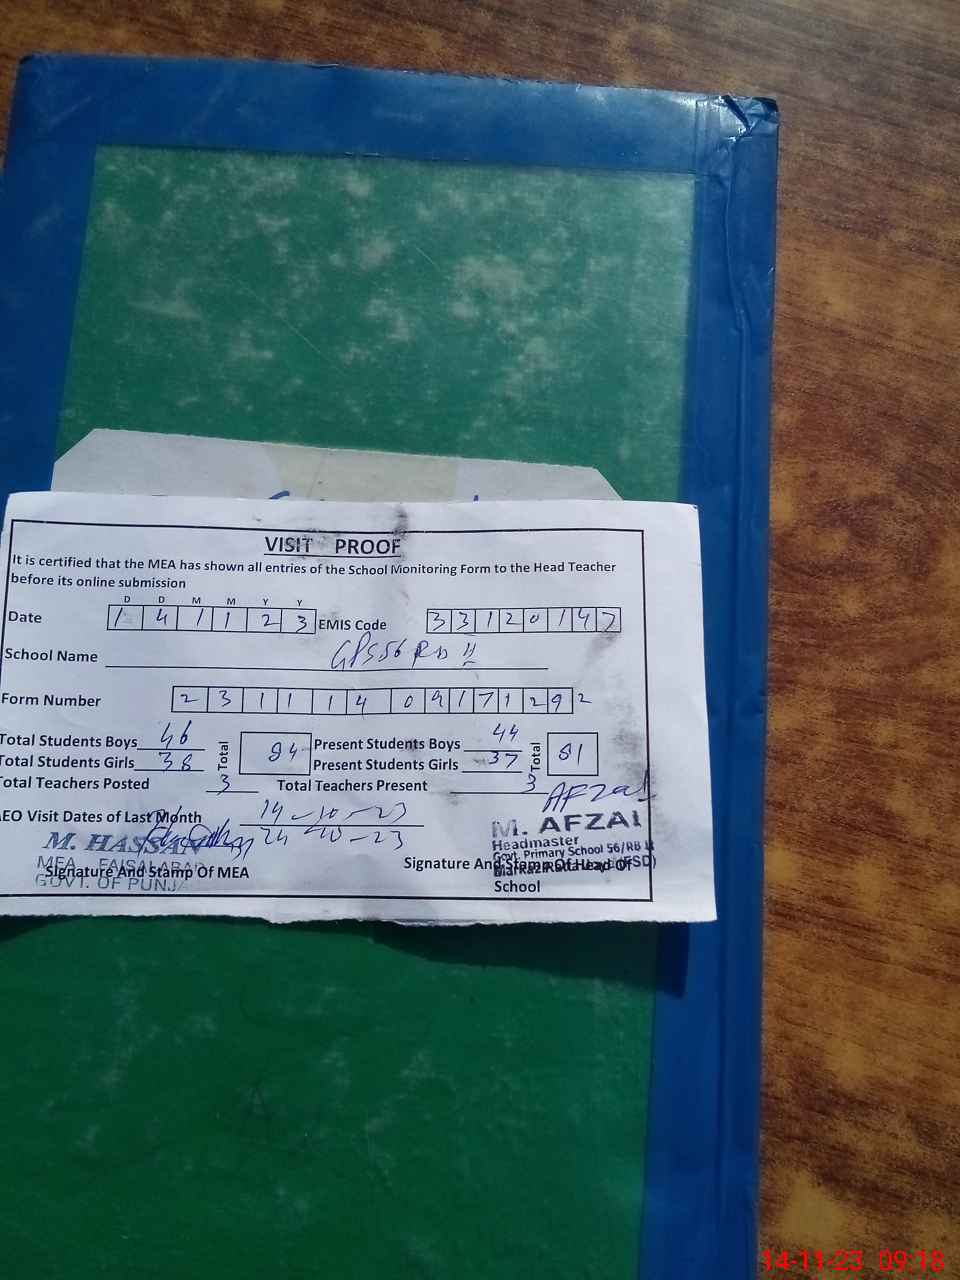 VISIT PROOF
It is certified that the MEA has shown all entries of the School Monitoring Form to the Head Teacher
before its online submission
D D M M Y Y
Date 1 4 1 1 2 3 EMIS Code 3 3 1 2 0 1 4 7
School Name GPS 56 RB II
Form Number 2 3 1 1 1 4 0 9 1 7 1 2 9 2
Total Students Boys 46 Total 84 Present Students Boys 44 Total 81
Total Students Girls 38 Present Students Girls 37
Total Teachers Posted 3 Total Teachers Present 3
Afzal
AEO Visit Dates of Last Month 19-10-23
24-10-23
M. HASSAN
MEA FAISALABAD
GOVT. OF PUNJAB
Signature And Stamp Of MEA
M. AFZAL
Headmaster
Govt. Primary School 56/RB II
(FSD)
Signature And Stamp Of Head Of
School
14-11-23 09:18